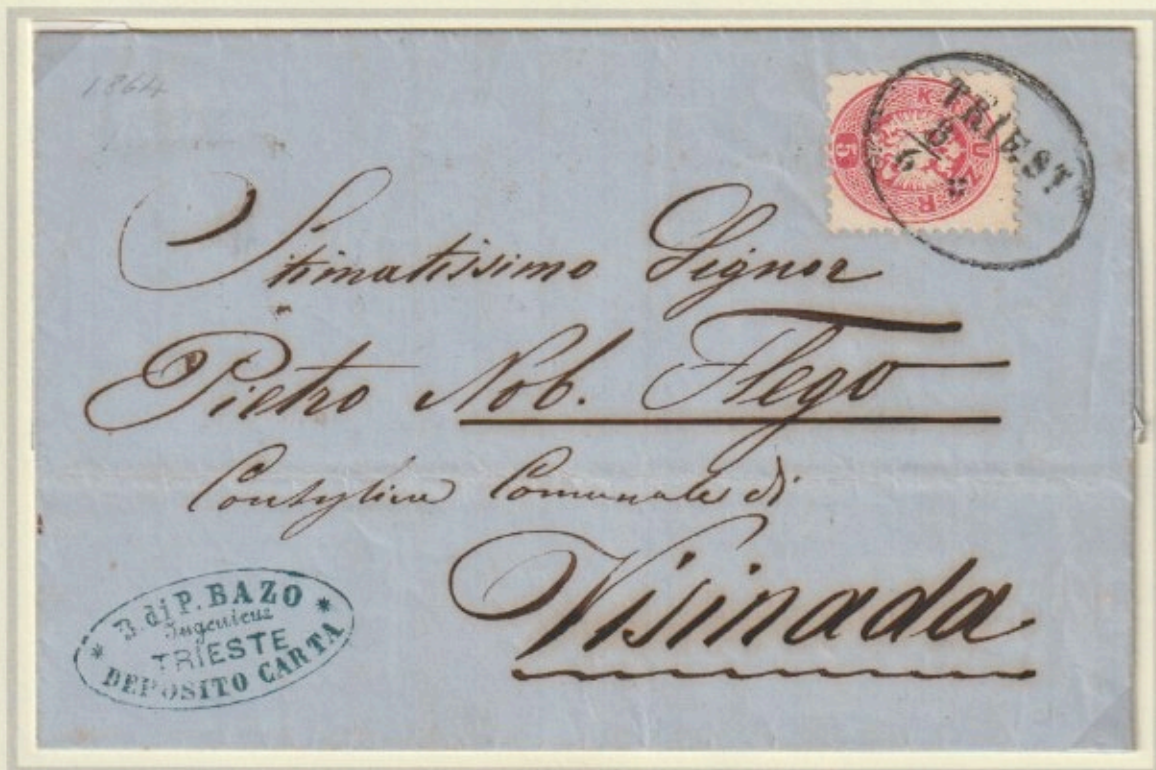 1864
KREUZER
5
TRIEST
8/6
Stimatissimo Signor
Pietro Nob. Flego
Consigliere Comunale di
Visinada
B. di P. BAZO
Ingenieur
TRIESTE
DEPOSITO CARTA